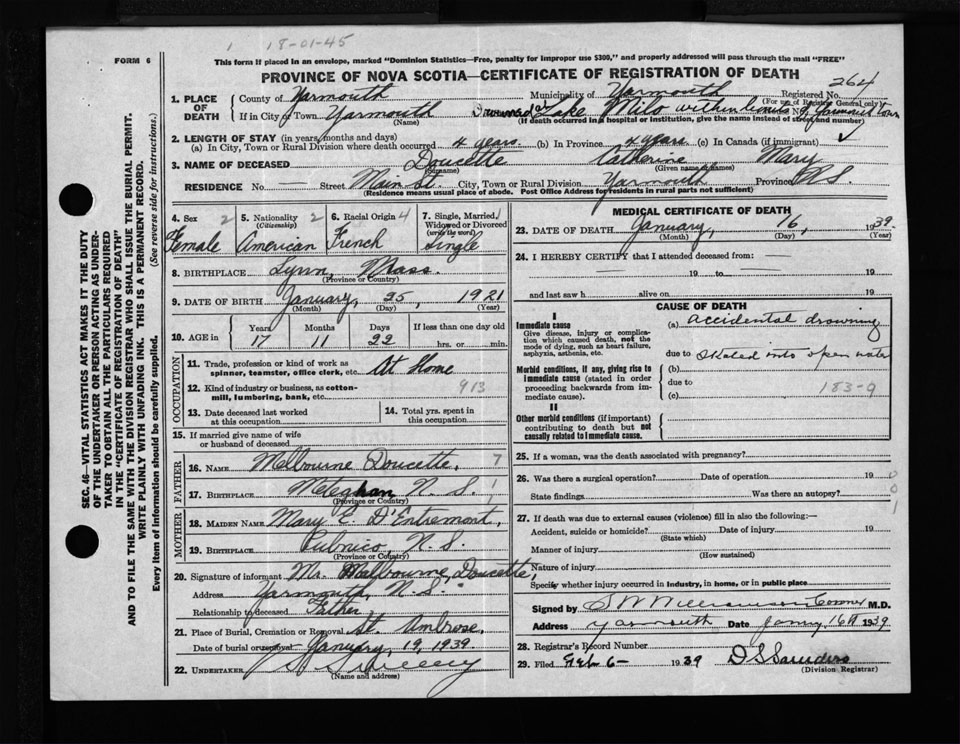 1 18-01-45
FORM 6
This form if placed in an envelope, marked "Dominion Statistics—Free, penalty for improper use $300," and properly addressed will pass through the mail "FREE"
PROVINCE OF NOVA SCOTIA—CERTIFICATE OF REGISTRATION OF DEATH
264
1. PLACE OF DEATH County of Yarmouth Municipality of Yarmouth Registered No.
(For use of Registrar General only)
If in City or Town Yarmouth Drowned at Lake Milo within limits of Yarmouth town
(Name) (If death occurred in a hospital or institution, give the name instead of street and number)
2. LENGTH OF STAY (in years, months and days)
(a) In City, Town or Rural Division where death occurred 4 years (b) In Province 4 years (c) In Canada (if immigrant)
3. NAME OF DECEASED Doucette Catherine Mary
(Surname) (Given name or names)
RESIDENCE No. — Street Main St. City, Town or Rural Division Yarmouth Province N.S.
(Residence means usual place of abode. Post Office Address for residents in rural parts not sufficient)
4. Sex 2 5. Nationality 2 (Citizenship) 6. Racial Origin 4 7. Single, Married, Widowed or Divorced (write the word)
Female American French Single
8. BIRTHPLACE Lynn, Mass.
(Province or Country)
9. DATE OF BIRTH January, 25, 1921
(Month) (Day) (Year)
10. AGE in Years Months Days If less than one day old
17 11 22 hrs. or min.
OCCUPATION
11. Trade, profession or kind of work as spinner, teamster, office clerk, etc. At Home
12. Kind of industry or business, as cotton-mill, lumbering, bank, etc. 913
13. Date deceased last worked at this occupation
14. Total yrs. spent in this occupation
15. If married give name of wife or husband of deceased
FATHER
16. NAME Melbourne Doucette, 7
17. BIRTHPLACE Meteghan N. S. 1
(Province or Country)
MOTHER
18. MAIDEN NAME Mary E. D'Entremont, 1
19. BIRTHPLACE Pubnico, N. S.
(Province or Country)
20. Signature of informant Mr. Melbourne Doucette,
Address Yarmouth, N.S.
Relationship to deceased Father,
21. Place of Burial, Cremation or Removal St. Ambrose,
Date of burial or removal January, 19, 1939
22. UNDERTAKER
(Name and address)
MEDICAL CERTIFICATE OF DEATH
23. DATE OF DEATH January, 16, 1939.
(Month) (Day) (Year)
24. I HEREBY CERTIFY that I attended deceased from: —
— 19 to — 19
and last saw h alive on 19
CAUSE OF DEATH
I
Immediate cause (a) accidental drowning
Give disease, injury or complication which caused death, not the mode of dying, such as heart failure, asphyxia, asthenia, etc.
due to skated into open water
Morbid conditions, if any, giving rise to immediate cause (stated in order proceeding backwards from immediate cause).
(b)
due to
(c) 183-9
II
Other morbid conditions (if important) contributing to death but not causally related to immediate cause.
25. If a woman, was the death associated with pregnancy?
26. Was there a surgical operation? Date of operation 19
State findings Was there an autopsy?
27. If death was due to external causes (violence) fill in also the following:—
Accident, suicide or homicide? Date of injury 19
(State which)
Manner of injury
(How sustained)
Nature of injury
Specify whether injury occurred in industry, in home, or in public place
Signed by Coroner M.D.
Address Yarmouth Date 16th 1939
28. Registrar's Record Number
29. Filed Feb 6— 1939 D S Saunders
(Division Registrar)
SEC. 46—VITAL STATISTICS ACT MAKES IT THE DUTY
OF THE UNDERTAKER OR PERSON ACTING AS UNDER-
TAKER TO OBTAIN ALL THE PARTICULARS REQUIRED
IN THE "CERTIFICATE OF REGISTRATION OF DEATH"
AND TO FILE THE SAME WITH THE DIVISION REGISTRAR WHO SHALL ISSUE THE BURIAL PERMIT.
WRITE PLAINLY WITH UNFADING INK. THIS IS A PERMANENT RECORD.
Every item of information should be carefully supplied. (See reverse side for instructions.)